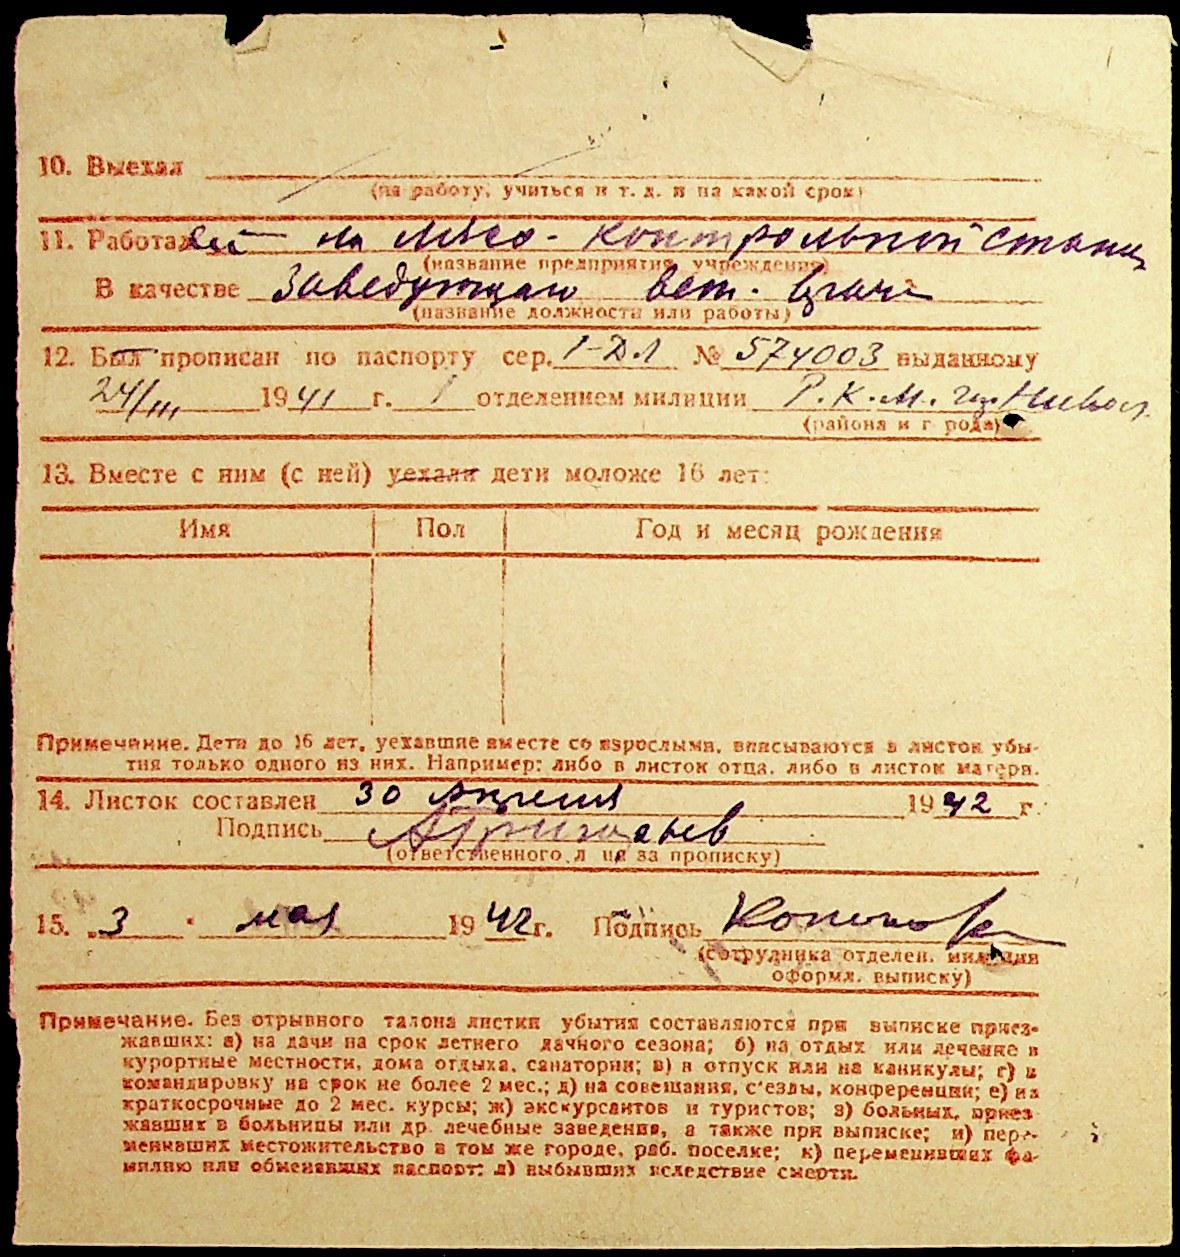 10. Выехал
(на работу, учиться и т. д. и на какой срок)
11. Работает на Мясо-контрольной станц.
(название предприятия, учреждения)
В качестве Заведующаю вет. врача
(название должности или работы)
12. Был прописан по паспорту сер. I-ДЛ № 574003 выданному
24/III 1941 г. 1 отделением милиции Р.К.М.
(района и города)
13. Вместе с ним (с ней) уехали дети моложе 16 лет:
Имя Пол Год и месяц рождения
Примечание. Дети до 16 лет, уехавшие вместе со взрослыми, вписываются в листок убы-
тия только одного из них. Например: либо в листок отца, либо в листок матери.
14. Листок составлен 30 Апреля 1942 г.
Подпись
(ответственного лица за прописку)
15. „3 " мая 1942 г. Подпись
(сотрудника отделен. милиции
оформл. выписку)
Примечание. Без отрывного талона листки убытия составляются при выписке приез-
жавших: а) на дачи на срок летнего дачного сезона; б) на отдых или лечение в
курортные местности, дома отдыха, санатории; в) в отпуск или на каникулы; г) в
командировку на срок не более 2 мес.; д) на совещания, с'езды, конференции; е) на
краткосрочные до 2 мес. курсы; ж) экскурсантов и туристов; з) больных, приез-
жавших в больницы или др. лечебные заведения, а также при выписке; и) пере-
менивших местожительство в том же городе, раб. поселке; к) переменивших фа-
милию или обменявших паспорт; л) выбывших вследствие смерти.